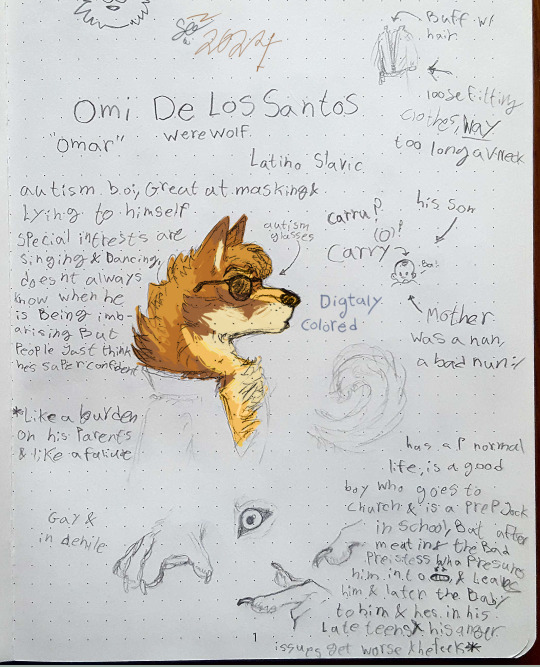 2024
Buff w/
hair
loose fitting
clothes, way
too long a V-neck
Omi De Los Santos
"Omar" werewolf
Latino Slavic
autism boi, Great at masking &
Lying to himself
special intrests are
singing & Dancing,
doesnt always
know when he
is Being imb-
arising But
People Just think
hes saPer confident
autism
glasses
carru?
(O)!
Carry
his son
Ba!
Digtaly
colored
Mother
was a nan,
a bad nun :/
*Like a burden
on his Parents
& like a failure
Gay &
in denile
has a P normal
life, is a good
boy who goes to
church & is a PreP Jock
in school, But after
meating the Bad
Preistess who Presures
him into & Leave
him & later the Baby
to him & hes in his
Late teens & his anger
issues get worse
1